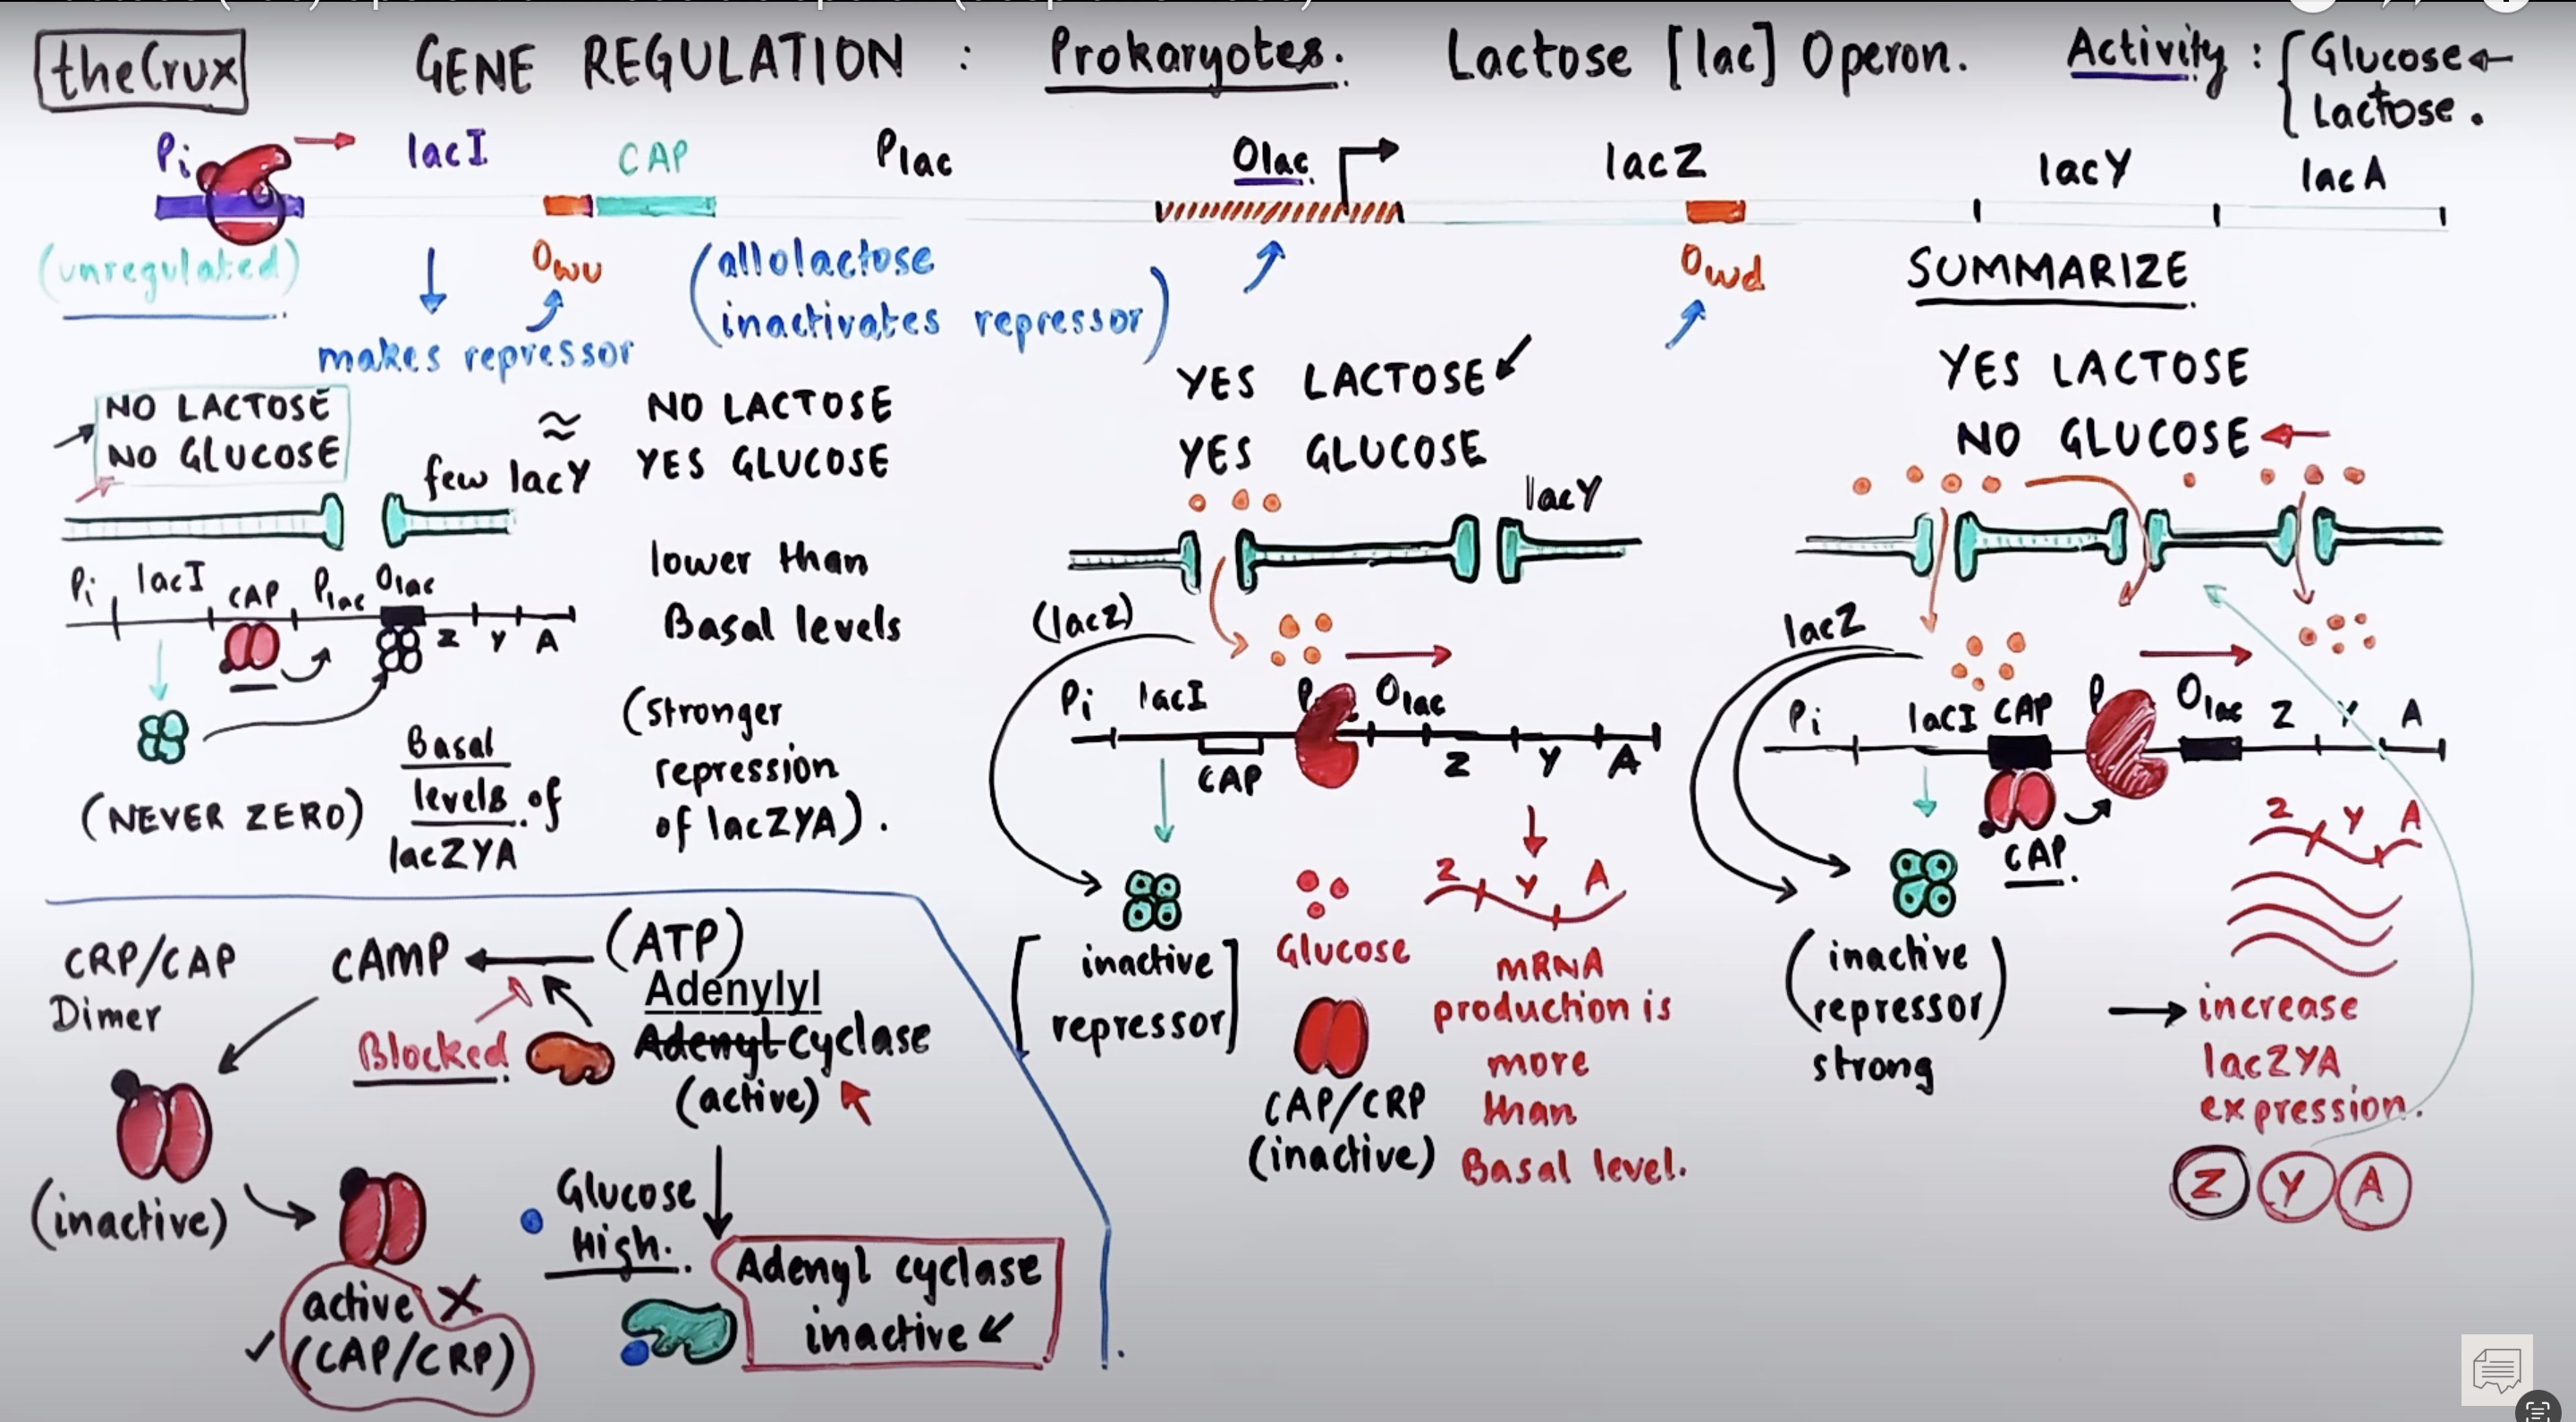 theCrux
GENE REGULATION : Prokaryotes. Lactose [lac] Operon. Activity : { Glucose ←
Lactose .
Pi lacI CAP Plac Olac lacZ lacY lacA
(unregulated)
Owu
(allolactose
inactivates repressor)
Owd
makes repressor
SUMMARIZE
NO LACTOSE
NO GLUCOSE
≈
few lacY
Pi lacI CAP Plac Olac
Z Y A
(NEVER ZERO)
Basal
levels of
lacZYA
NO LACTOSE
YES GLUCOSE
lower than
Basal levels
(stronger
repression
of lacZYA).
YES LACTOSE
YES GLUCOSE
lacY
(lacZ)
Pi lacI P Olac
CAP Z Y A
inactive
repressor
Glucose
CAP/CRP
(inactive)
Z Y A
mRNA
production is
more
than
Basal level.
YES LACTOSE
NO GLUCOSE ←
lacZ
Pi lacI CAP P Olac Z Y A
CAP.
(inactive
repressor)
strong
Z Y A
→ increase
lacZYA
expression.
Z Y A
CRP/CAP
Dimer
cAMP ← (ATP)
Adenylyl
Adenyl Cyclase
(active)
Blocked.
(inactive)
active X
✓ (CAP/CRP)
Glucose
High.
Adenyl cyclase
inactive